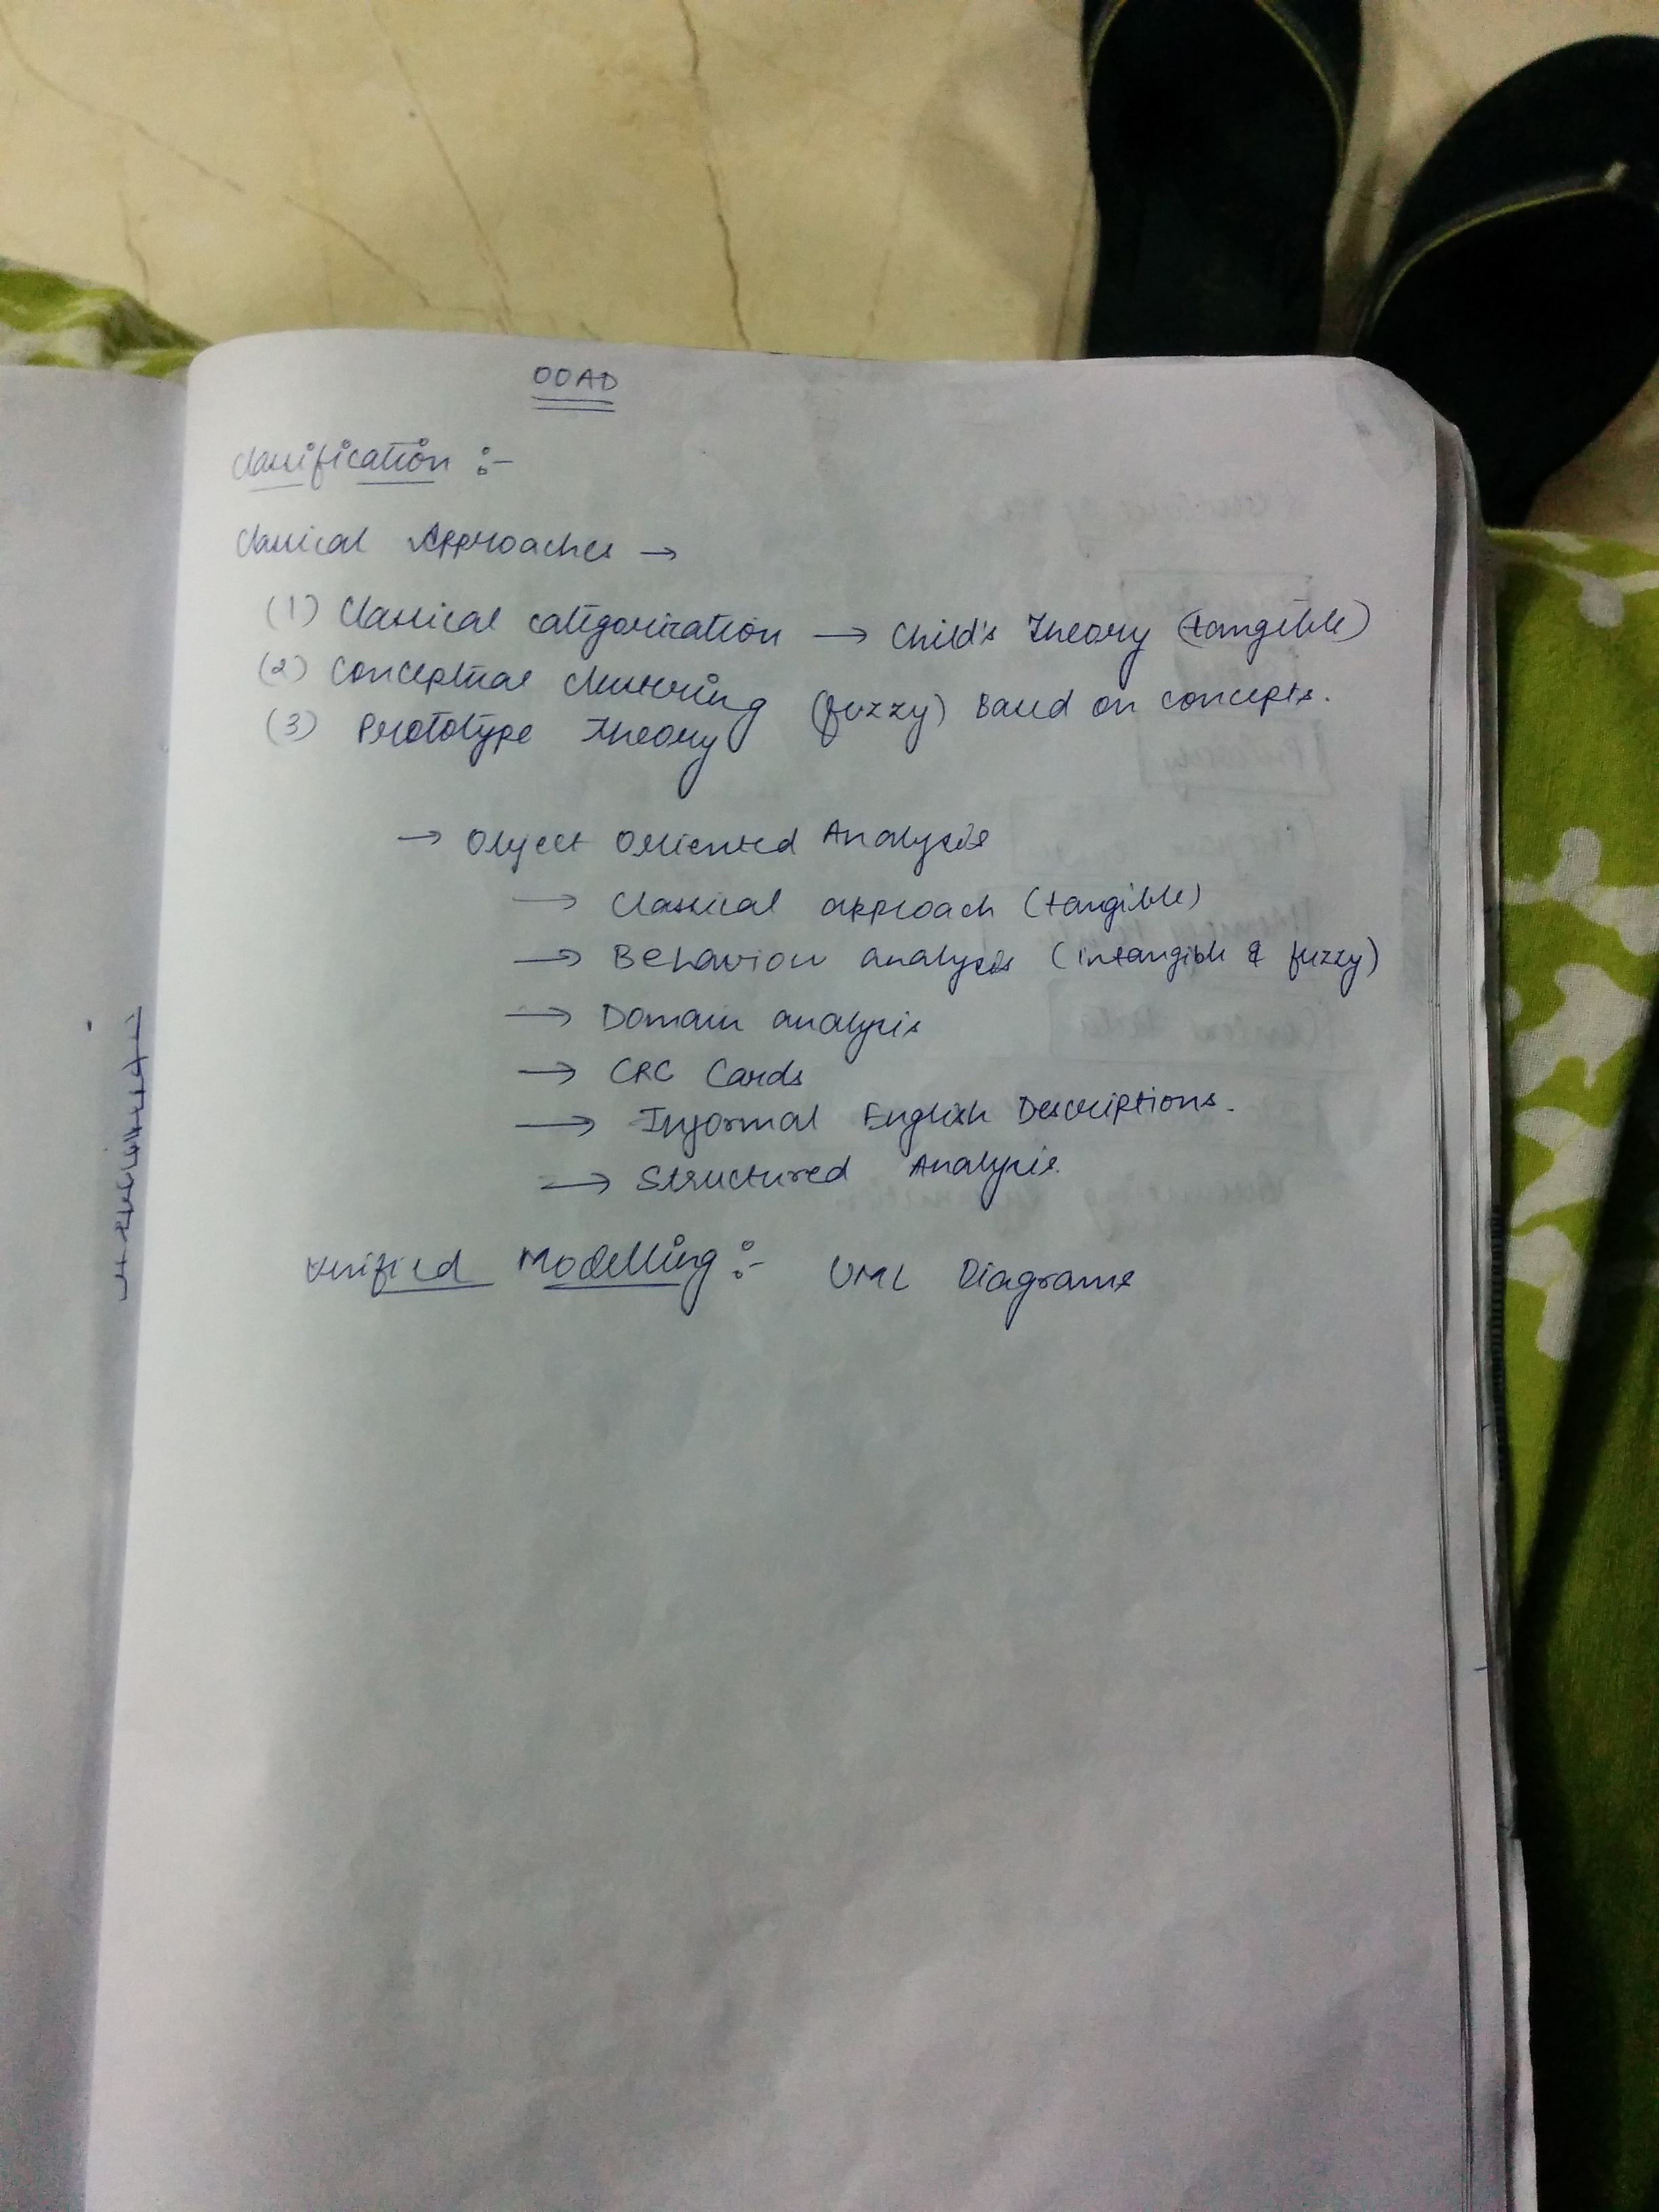 OOAD
Classification :-
Classical Approaches →
(1) Classical categorization → Child's Theory (tangible)
(2) Conceptual clustering (fuzzy) Based on concepts.
(3) Prototype Theory
→ Object Oriented Analysis
→ Classical approach (tangible)
→ Behaviour analysis (intangible & fuzzy)
→ Domain analysis
→ CRC Cards
→ Informal English Descriptions.
→ Structured Analysis.
Unified Modelling :- UML Diagrams